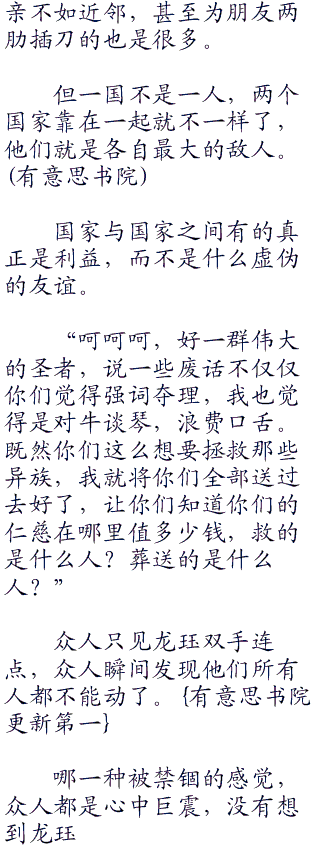 亲不如近邻，甚至为朋友两
肋插刀的也是很多。
但一国不是一人，两个
国家靠在一起就不一样了，
他们就是各自最大的敌人。
(有意思书院)
国家与国家之间有的真
正是利益，而不是什么虚伪
的友谊。
“呵呵呵，好一群伟大
的圣者，说一些废话不仅仅
你们觉得强词夺理，我也觉
得是对牛谈琴，浪费口舌。
既然你们这么想要拯救那些
异族，我就将你们全部送过
去好了，让你们知道你们的
仁慈在哪里值多少钱，救的
是什么人？葬送的是什么
人？”
众人只见龙珏双手连
点，众人瞬间发现他们所有
人都不能动了。{有意思书院
更新第一}
哪一种被禁锢的感觉，
众人都是心中巨震，没有想
到龙珏